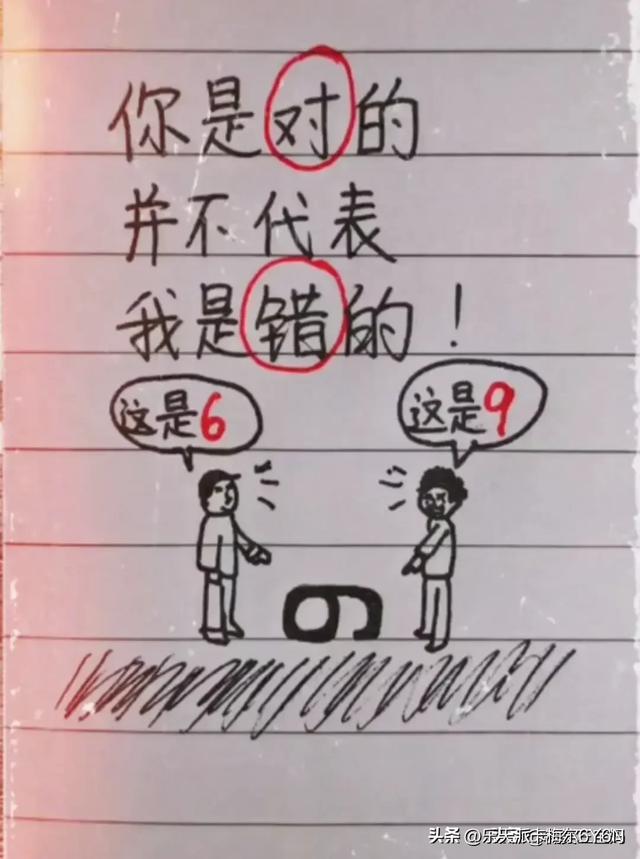 你是对的
并不代表
我是错的！
这是6
这是9
头条 @乐天派卡梅尔